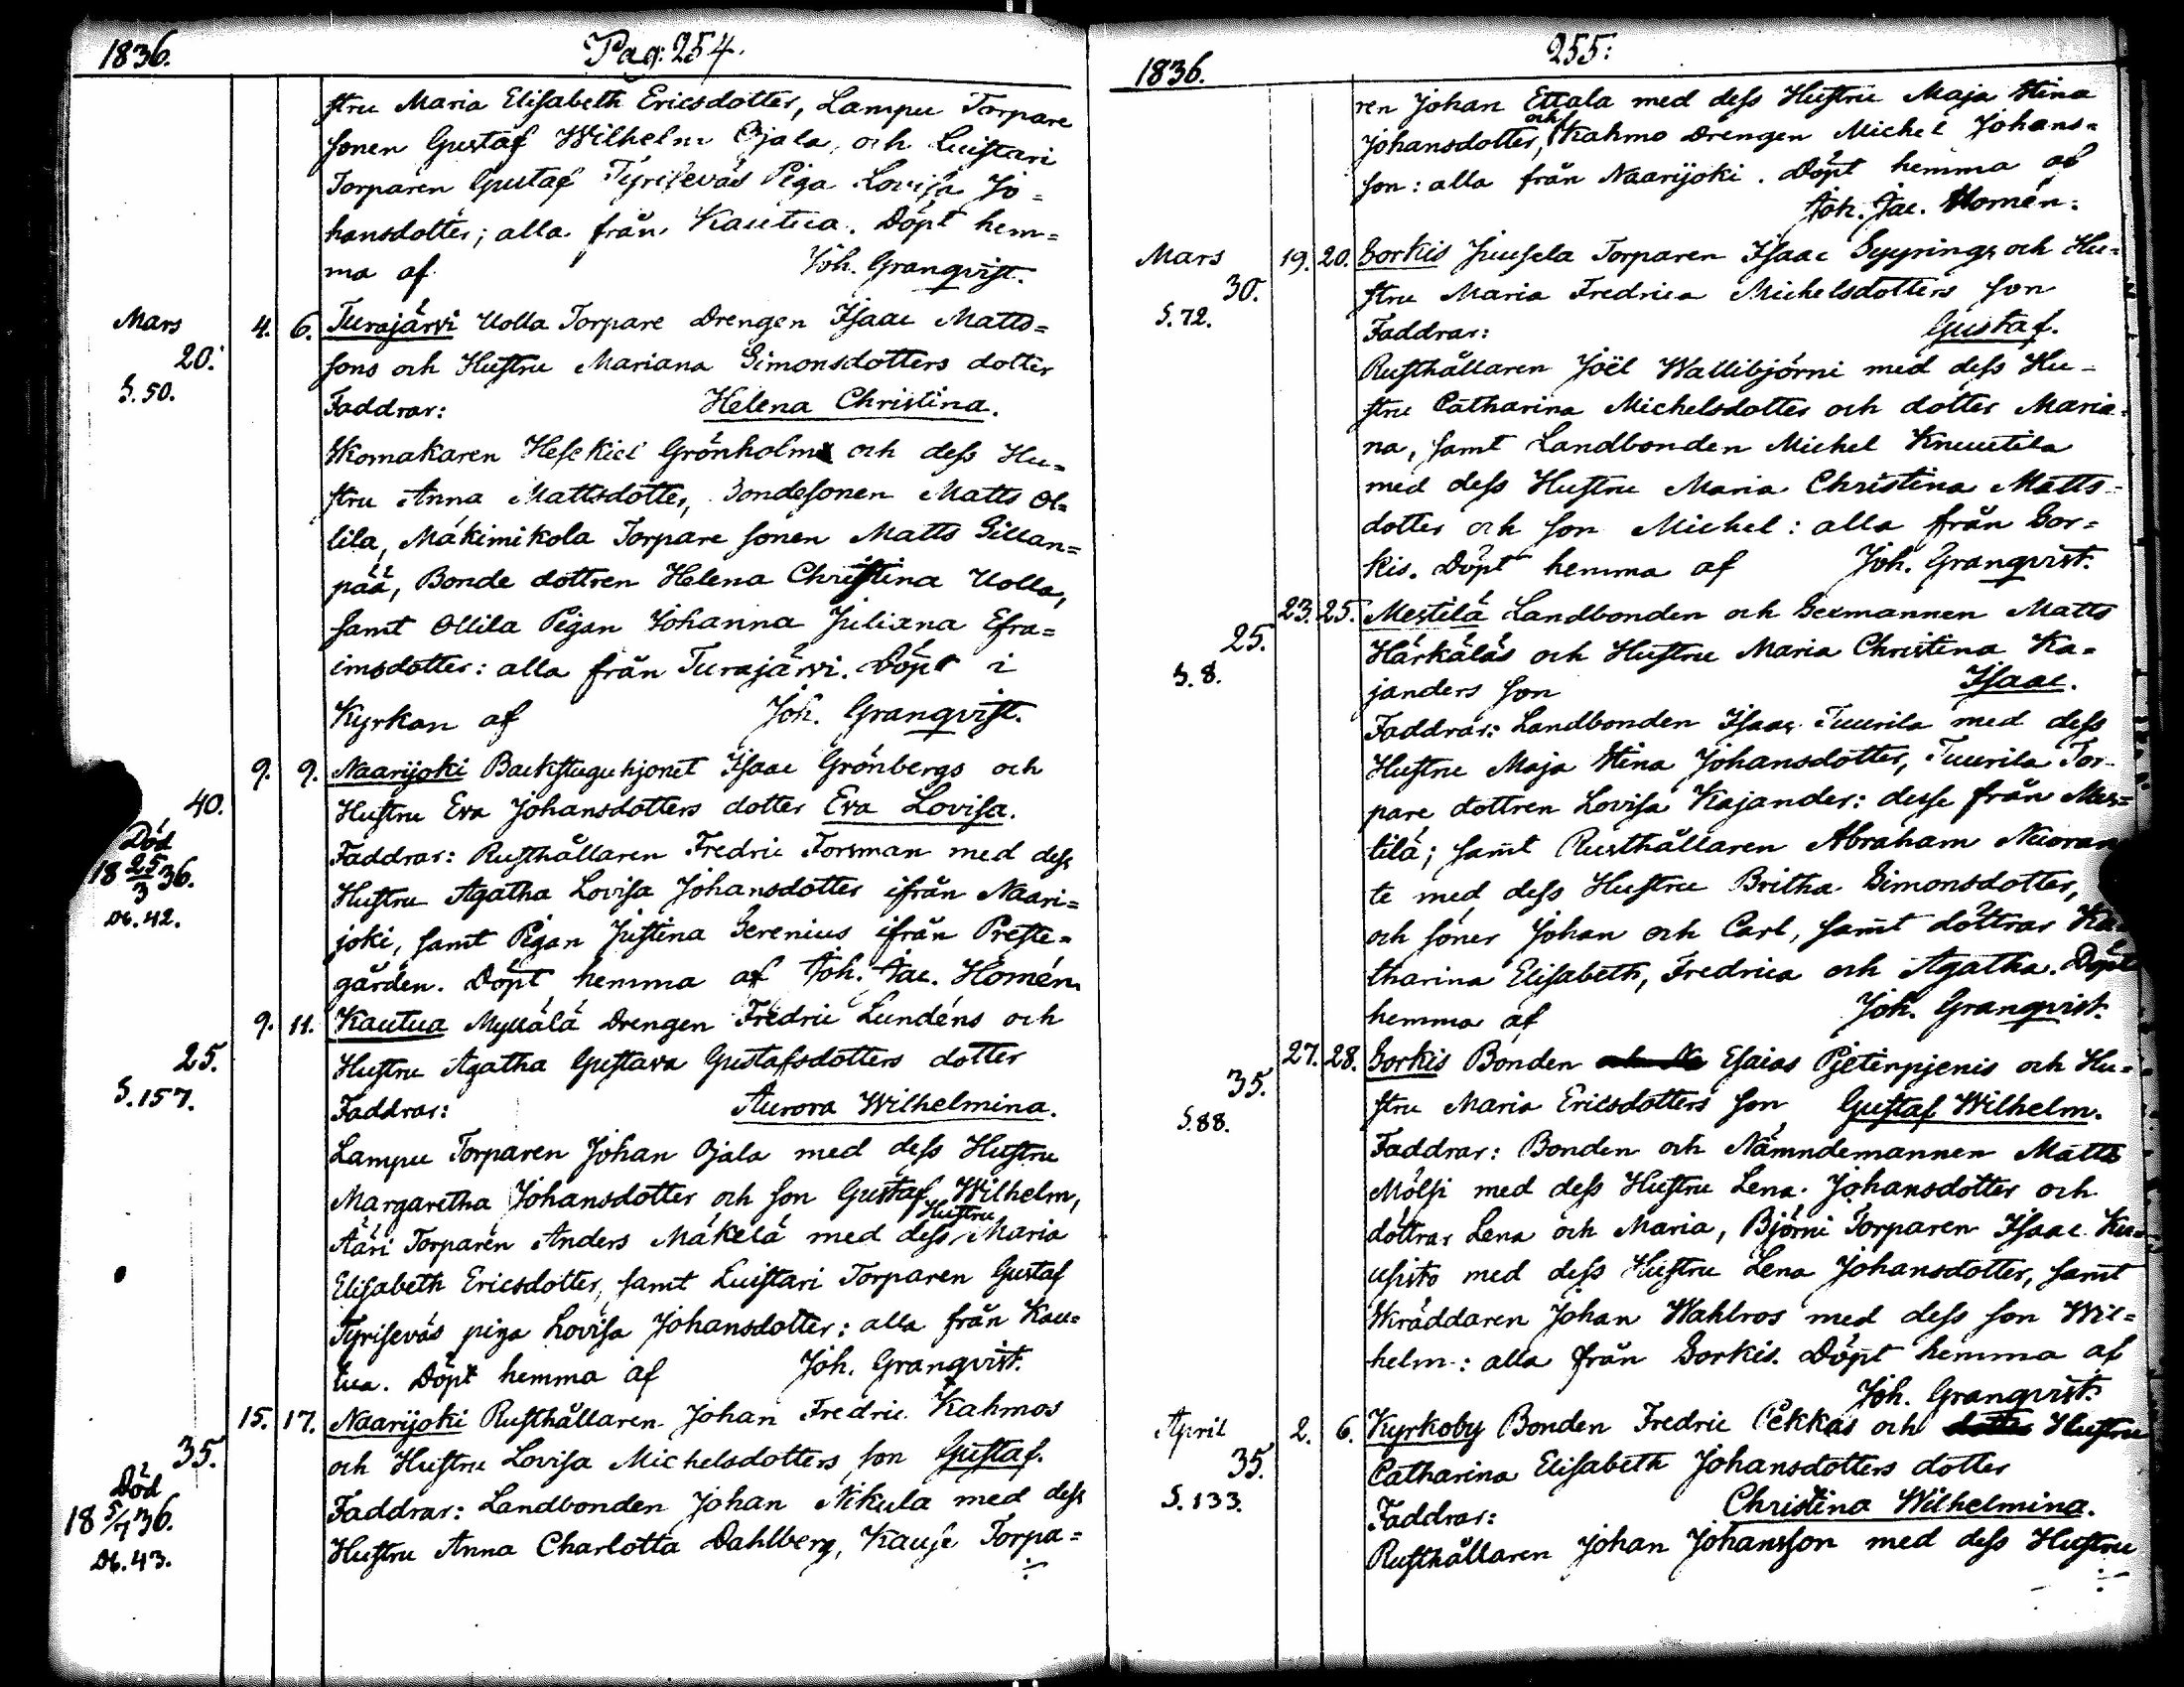 1836.
Pag: 254.
stru Maria Elisabeth Ericsdotter, Lampu Torpare
sonen Gustaf Wilhelm Ojala, och Luistari
Torparen Gustaf Tyrisevás Piga Lovisa Jo=
hansdotter; alla från Kautua. Döpt hem=
ma af Joh. Granqvist.
Mars 20. S. 50.
4. 6. Turajärvi Uolla Torpare Drengen Isaac Matts=
sons och Hustru Mariana Simonsdotters dotter
Faddrar: Helena Christina.
Skomakaren Hesekiel Grönholm och dess Hu=
stru Anna Mattsdotter, Bondesonen Matts Ol=
lila, Mäkimikola Torpare sonen Matts Sillan=
pää, Bonde dottren Helena Christina Uolla,
samt Ollila Pigan Johanna Juliana Efra=
imsdotter: alla från Turajärvi. Döpt i
Kyrkan af Joh. Granqvist.
40. Död 18 25/3 36. Db. 42.
9. 9. Naarijoki Backstuguhjonet Isaac Grönbergs och
Hustru Eva Johansdotters dotter Eva Lovisa.
Faddrar: Rusthållaren Fredric Forsman med dess
Hustru Agatha Lovisa Johansdotter ifrån Naari=
joki, samt Pigan Justina Serenius ifrån Preste=
gården. Döpt hemma af Joh. Jac. Homén.
25. S. 157.
9. 11. Kautua Myllälä Drengen Fredric Lundéns och
Hustru Agatha Gustava Gustafsdotters dotter
Faddrar: Aurora Wilhelmina.
Lampu Torparen Johan Ojala med dess Hustru
Margaretha Johansdotter och son Gustaf Wilhelm,
Ääri Torparen Anders Mäkelä med dess Hustru Maria
Elisabeth Ericsdotter, samt Luistari Torparen Gustaf
Tyrisevás piga Lovisa Johansdotter: alla från Kau=
tua. Döpt hemma af Joh. Granqvist.
35. Död 18 5/4 36. Db. 43.
15. 17. Naarijoki Rusthållaren Johan Fredric Kahmos
och Hustru Lovisa Michelsdotters son Gustaf.
Faddrar: Landbonden Johan Nikula med dess
Hustru Anna Charlotta Dahlberg, Kauje Torpa=
1836.
255:
ren Johan Ettala med dess Hustru Maja Stina
Johansdotter, och Kahmo Drengen Michel Johans=
son: alla från Naarijoki. Döpt hemma af
Joh. Jac. Homén.
Mars 30. S. 72.
19. 20. Sorkis Juusela Torparen Isaac Syyrings och Hu=
stru Maria Fredrica Michelsdotters son
Faddrar: Gustaf.
Rusthållaren Joël Wallibjörni med dess Hu=
stru Catharina Michelsdotter och dotter Maria=
na, samt Landbonden Michel Knuutila
med dess Hustru Maria Christina Matts=
dotter och son Michel: alla från Sor=
kis. Döpt hemma af Joh. Granqvist.
25. S. 8.
23. 25. Mestilä Landbonden och Sexmannen Matts
Härkäläs och Hustru Maria Christina Ka=
janders son Isaac.
Faddrar: Landbonden Isaac Tuurila med dess
Hustru Maja Stina Johansdotter, Tuurila Tor=
pare dottren Lovisa Kajander: desse från Mes=
tilä; samt Rusthållaren Abraham Nuoran
te med dess Hustru Britha Simonsdotter,
och söner Johan och Carl, samt döttrar Ka
tharina Elisabeth, Fredrica och Agatha. Döpt
hemma af Joh. Granqvist.
35. S. 88.
27. 28. Sorkis Bonden Esaias Pjetinpjenis och Hu=
stru Maria Ericsdotters son Gustaf Wilhelm.
Faddrar: Bonden och Nämndemannen Matts
Mölsi med dess Hustru Lena Johansdotter och
döttrar Lena och Maria, Björni Torparen Isaac Ku=
usisto med dess Hustru Lena Johansdotter, samt
Skräddaren Johan Wahlros med dess son Wil=
helm: alla från Sorkis. Döpt hemma af
Joh. Granqvist.
April 35. S. 133.
2. 6. Kyrkoby Bonden Fredric Pekkas och Hustru
Catharina Elisabeth Johansdotters dotter
Faddrar: Christina Wilhelmina.
Rusthållaren Johan Johansson med dess Hustru